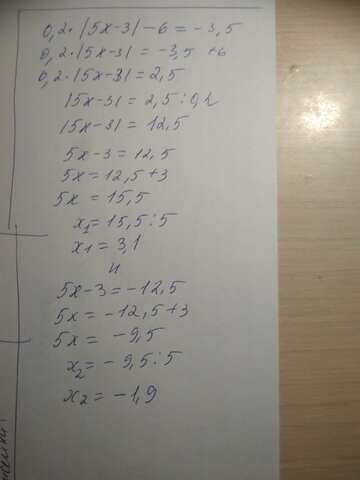 0,2·|5x-3|-6=-3,5
0,2·|5x-3|=-3,5+6
0,2·|5x-3|=2,5
|5x-3|=2,5:0,2
|5x-3|=12,5
5x-3=12,5
5x=12,5+3
5x=15,5
x₁=15,5:5
x1=3,1
и
5x-3=-12,5
5x=-12,5+3
5x=-9,5
x₂=-9,5:5
x2=-1,9